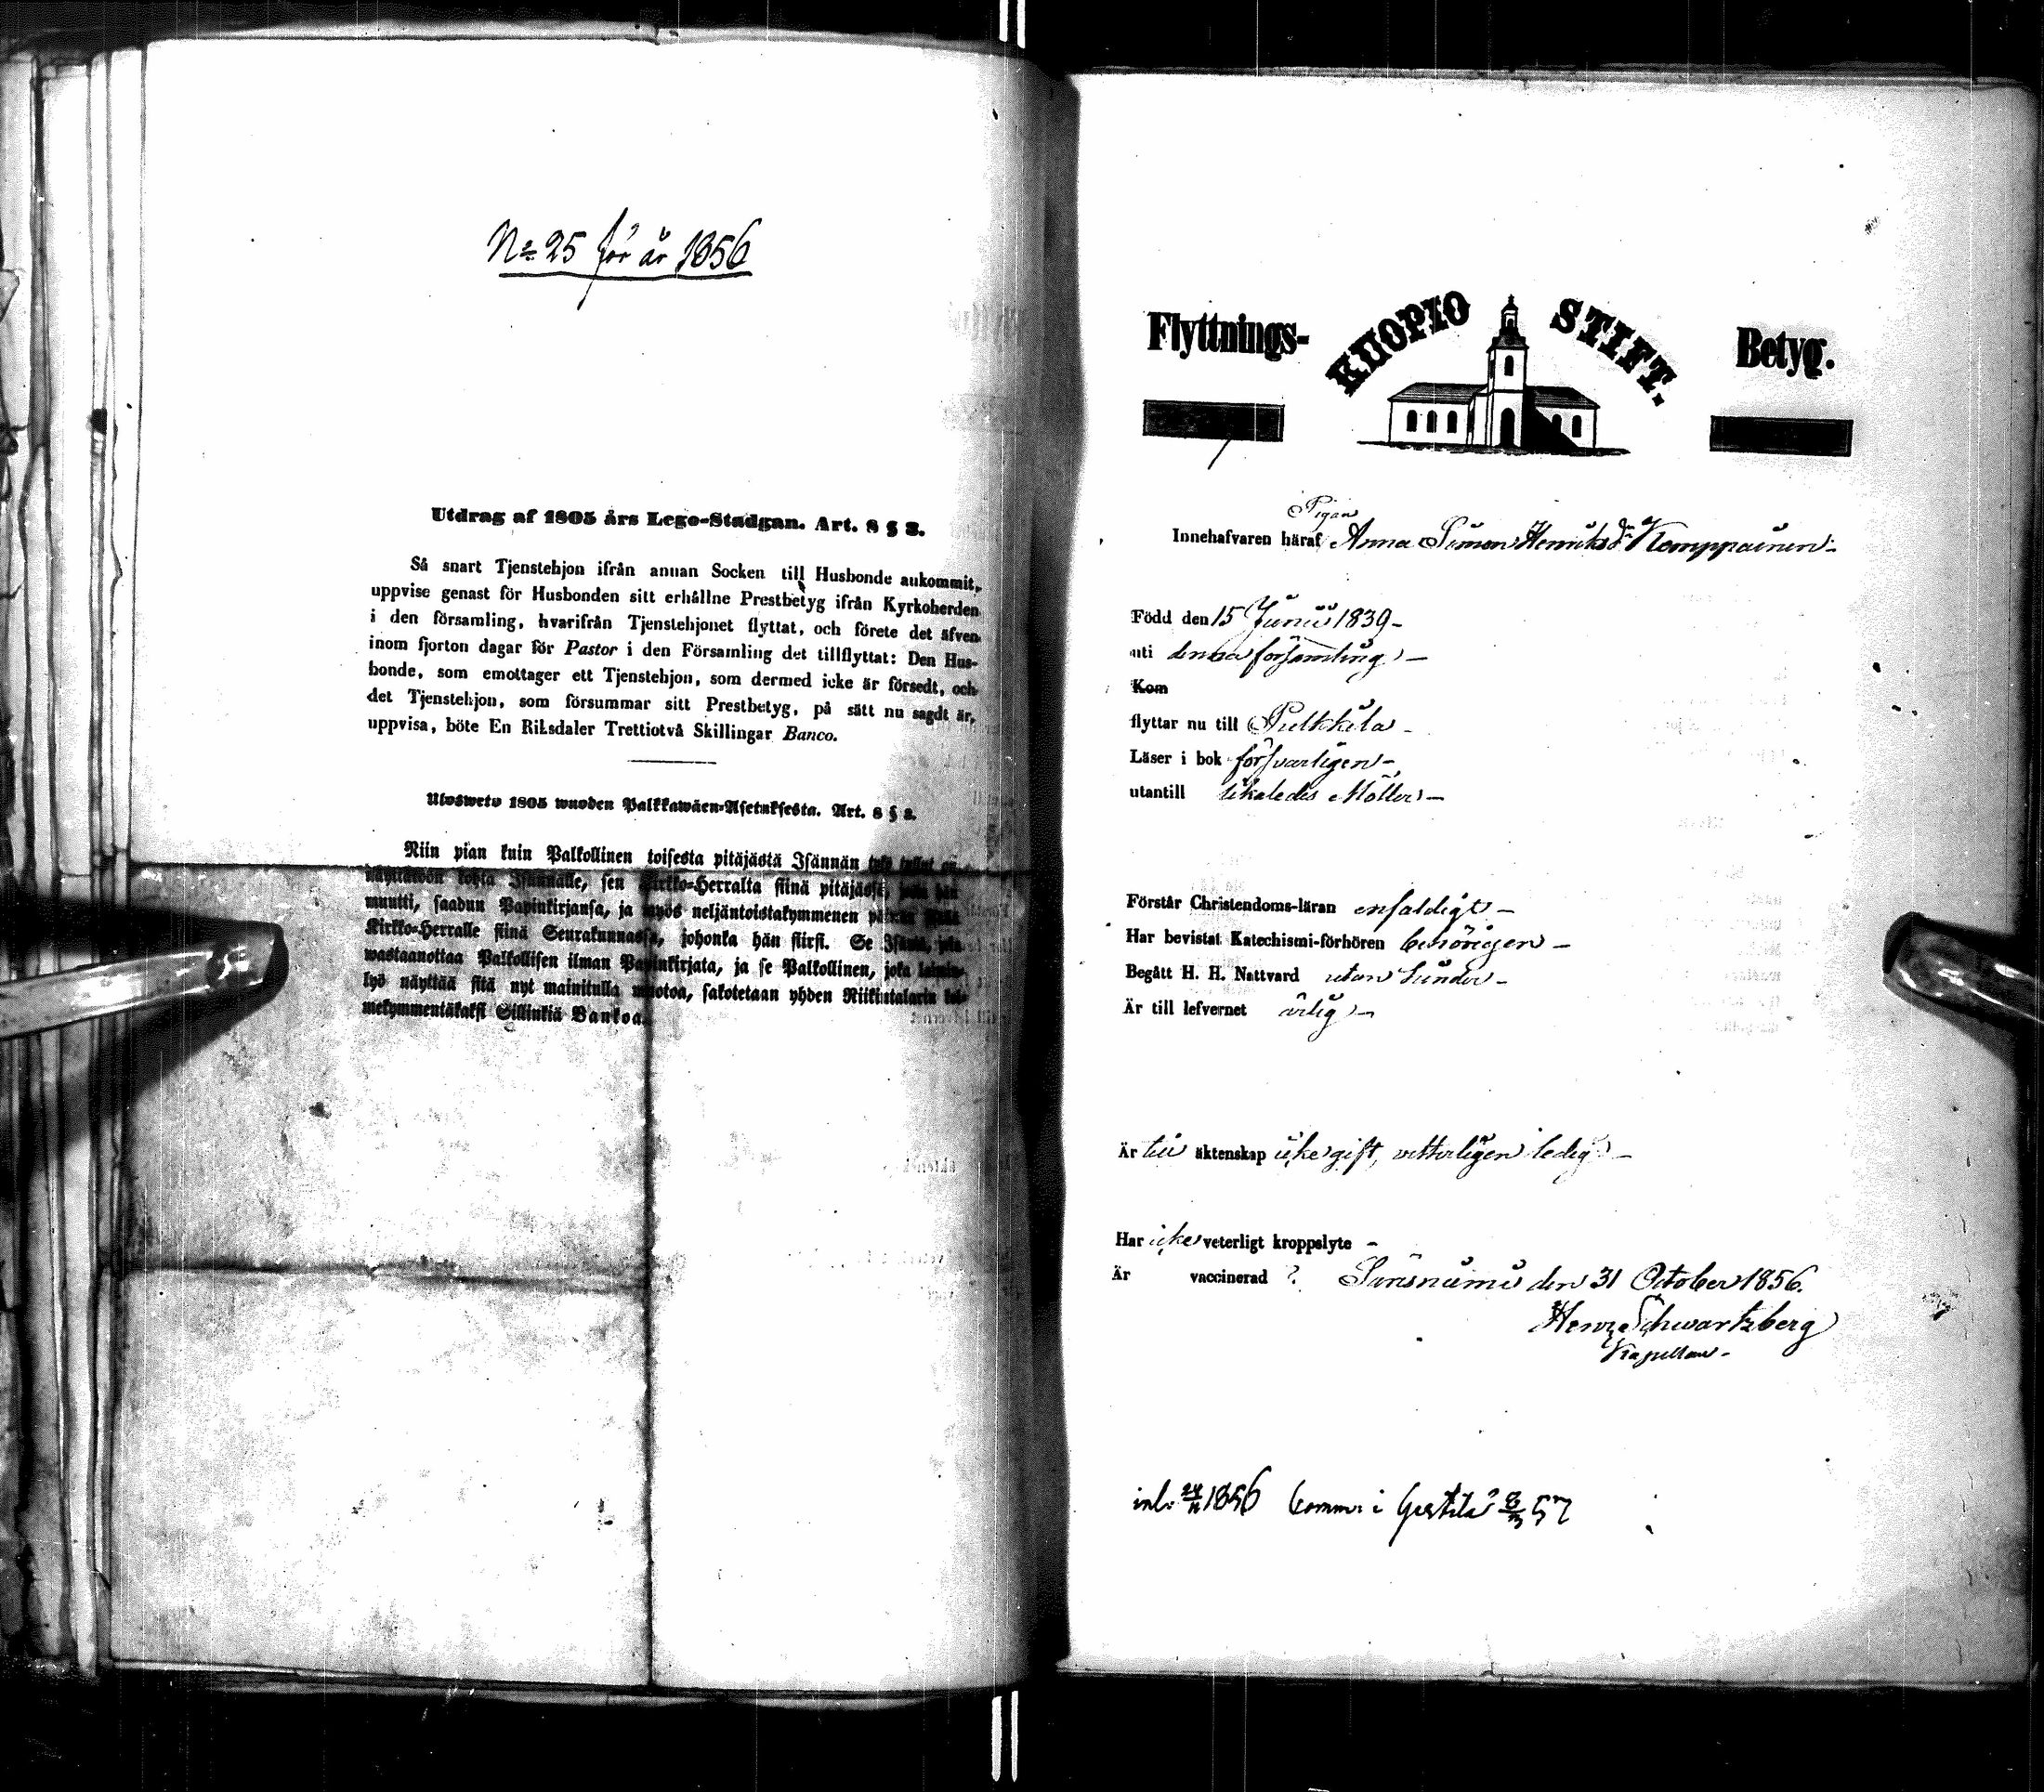 No 25 för år 1856
Utdrag af 1805 års Lego-Stadgan. Art. 8 § 3.
Så snart Tjenstehjon ifrån annan Socken till Husbonde ankommit,
uppvise genast för Husbonden sitt erhållne Prestbetyg ifrån Kyrkoherden
i den församling, hvarifrån Tjenstehjonet flyttat, och förete det äfven
inom fjorton dagar för Pastor i den Församling det tillflyttat: Den Hus-
bonde, som emottager ett Tjenstehjon, som dermed icke är försedt, och
det Tjenstehjon, som försummar sitt Prestbetyg, på sätt nu sagdt är,
uppvisa, böte En Riksdaler Trettiotvå Skillingar Banco.
Ulosweto 1805 wuoden Palkkawäen-Asetuksesta. Art. 8 § 3.
Niin pian kuin Palkollinen toisesta pitäjästä Isännän tykö tullut on,
näyttäköön kohta Isännälle, sen Kirkko-Herralta siinä pitäjässä, hän
muutti, saadun Papinkirjansa, ja myös neljäntoistakymmenen
Kirkko-Herralle siinä Seurakunnassa, johonka hän siirsi. Se Isäntä, joka
wastaanottaa Palkollisen ilman Papinkirjata, ja se Palkollinen, joka laimin-
lyö näyttää sitä nyt mainitulla muotoa, sakotetaan yhden Riikintalarin kol-
mekymmentäkaksi Sillinkiä Bankoa.
Flyttnings- KUOPIO STIFT. Betyg.
Pigan
Innehafvaren häraf Anna Simon Henriksdr Kemppainen
Född den 15 Junii 1839
uti denna församling
Kom
flyttar nu till Pulkkila
Läser i bok försvarligen
utantill likaledes Möller
Förstår Christendoms-läran enfaldigt
Har bevistat Katechismi-förhören behörigen
Begått H. H. Nattvard utan hinder
Är till lefvernet ärlig
Är till äktenskap icke gift, vetterligen ledig
Har icke veterligt kroppslyte
Är vaccinerad ? den 31 October 1856.
Henr Schwartzberg
Kapellan
inl. 1856 i 57